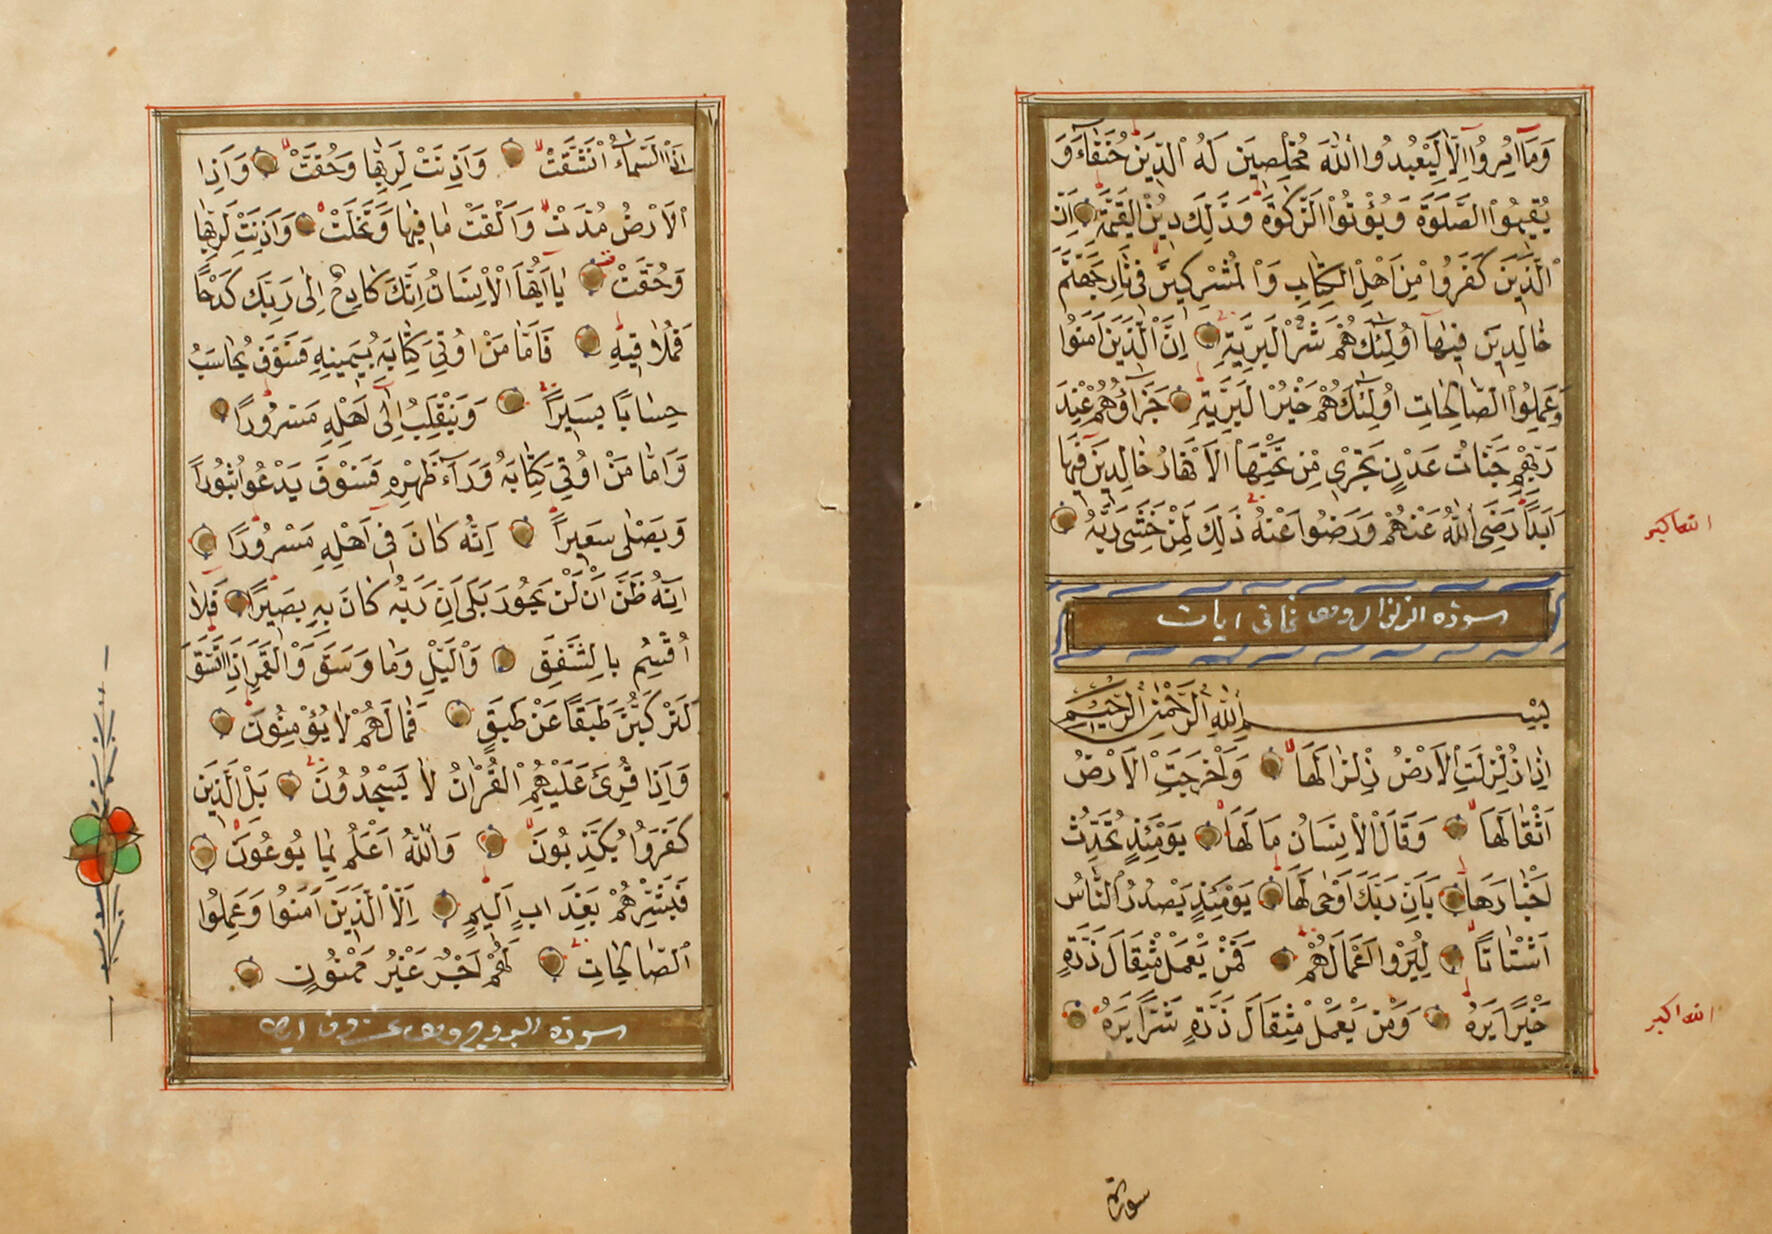 وَمَا اُمِرُوا اِلَّا لِيَعْبُدُوا اللّٰهَ مُخْلِصِينَ لَهُ الدِّينَ حُنَفَاءَ وَ
يُقِيمُوا الصَّلٰوةَ وَيُؤْتُوا الزَّكٰوةَ وَذٰلِكَ دِينُ الْقَيِّمَةِ اِنَّ
الَّذِينَ كَفَرُوا مِنْ اَهْلِ الْكِتَابِ وَالْمُشْرِكِينَ فِي نَارِ جَهَنَّمَ
خَالِدِينَ فِيهَا اُولٰئِكَ هُمْ شَرُّ الْبَرِيَّةِ اِنَّ الَّذِينَ اٰمَنُوا
وَعَمِلُوا الصَّالِحَاتِ اُولٰئِكَ هُمْ خَيْرُ الْبَرِيَّةِ جَزَاؤُهُمْ عِنْدَ
رَبِّهِمْ جَنَّاتُ عَدْنٍ تَجْرِي مِنْ تَحْتِهَا الْاَنْهَارُ خَالِدِينَ فِيهَا
اَبَدًا رَضِيَ اللّٰهُ عَنْهُمْ وَرَضُوا عَنْهُ ذٰلِكَ لِمَنْ خَشِيَ رَبَّهُ
الله اكبر
سورة الزلزال وهى ثمانى ايات
بِسْمِ اللّٰهِ الرَّحْمٰنِ الرَّحِيمِ
اِذَا زُلْزِلَتِ الْاَرْضُ زِلْزَالَهَا وَاَخْرَجَتِ الْاَرْضُ
اَثْقَالَهَا وَقَالَ الْاِنْسَانُ مَا لَهَا يَوْمَئِذٍ تُحَدِّثُ
اَخْبَارَهَا بِاَنَّ رَبَّكَ اَوْحٰى لَهَا يَوْمَئِذٍ يَصْدُرُ النَّاسُ
اَشْتَاتًا لِيُرَوْا اَعْمَالَهُمْ فَمَنْ يَعْمَلْ مِثْقَالَ ذَرَّةٍ
خَيْرًا يَرَهُ وَمَنْ يَعْمَلْ مِثْقَالَ ذَرَّةٍ شَرًّا يَرَهُ
الله اكبر
سورة
اِذَا السَّمَاءُ انْشَقَّتْ وَاَذِنَتْ لِرَبِّهَا وَحُقَّتْ وَاِذَا
الْاَرْضُ مُدَّتْ وَاَلْقَتْ مَا فِيهَا وَتَخَلَّتْ وَاَذِنَتْ لِرَبِّهَا
وَحُقَّتْ يَا اَيُّهَا الْاِنْسَانُ اِنَّكَ كَادِحٌ اِلٰى رَبِّكَ كَدْحًا
فَمُلَاقِيهِ فَاَمَّا مَنْ اُوتِيَ كِتَابَهُ بِيَمِينِهِ فَسَوْفَ يُحَاسَبُ
حِسَابًا يَسِيرًا وَيَنْقَلِبُ اِلٰى اَهْلِهِ مَسْرُورًا
وَاَمَّا مَنْ اُوتِيَ كِتَابَهُ وَرَاءَ ظَهْرِهِ فَسَوْفَ يَدْعُوا ثُبُورًا
وَيَصْلٰى سَعِيرًا اِنَّهُ كَانَ فِي اَهْلِهِ مَسْرُورًا
اِنَّهُ ظَنَّ اَنْ لَنْ يَحُورَ بَلٰى اِنَّ رَبَّهُ كَانَ بِهِ بَصِيرًا فَلَا
اُقْسِمُ بِالشَّفَقِ وَالَّيْلِ وَمَا وَسَقَ وَالْقَمَرِ اِذَا اتَّسَقَ
لَتَرْكَبُنَّ طَبَقًا عَنْ طَبَقٍ فَمَا لَهُمْ لَا يُؤْمِنُونَ
وَاِذَا قُرِئَ عَلَيْهِمُ الْقُرْاٰنُ لَا يَسْجُدُونَ بَلِ الَّذِينَ
كَفَرُوا يُكَذِّبُونَ وَاللّٰهُ اَعْلَمُ بِمَا يُوعُونَ
فَبَشِّرْهُمْ بِعَذَابٍ اَلِيمٍ اِلَّا الَّذِينَ اٰمَنُوا وَعَمِلُوا
الصَّالِحَاتِ لَهُمْ اَجْرٌ غَيْرُ مَمْنُونٍ
سورة البروج وهى